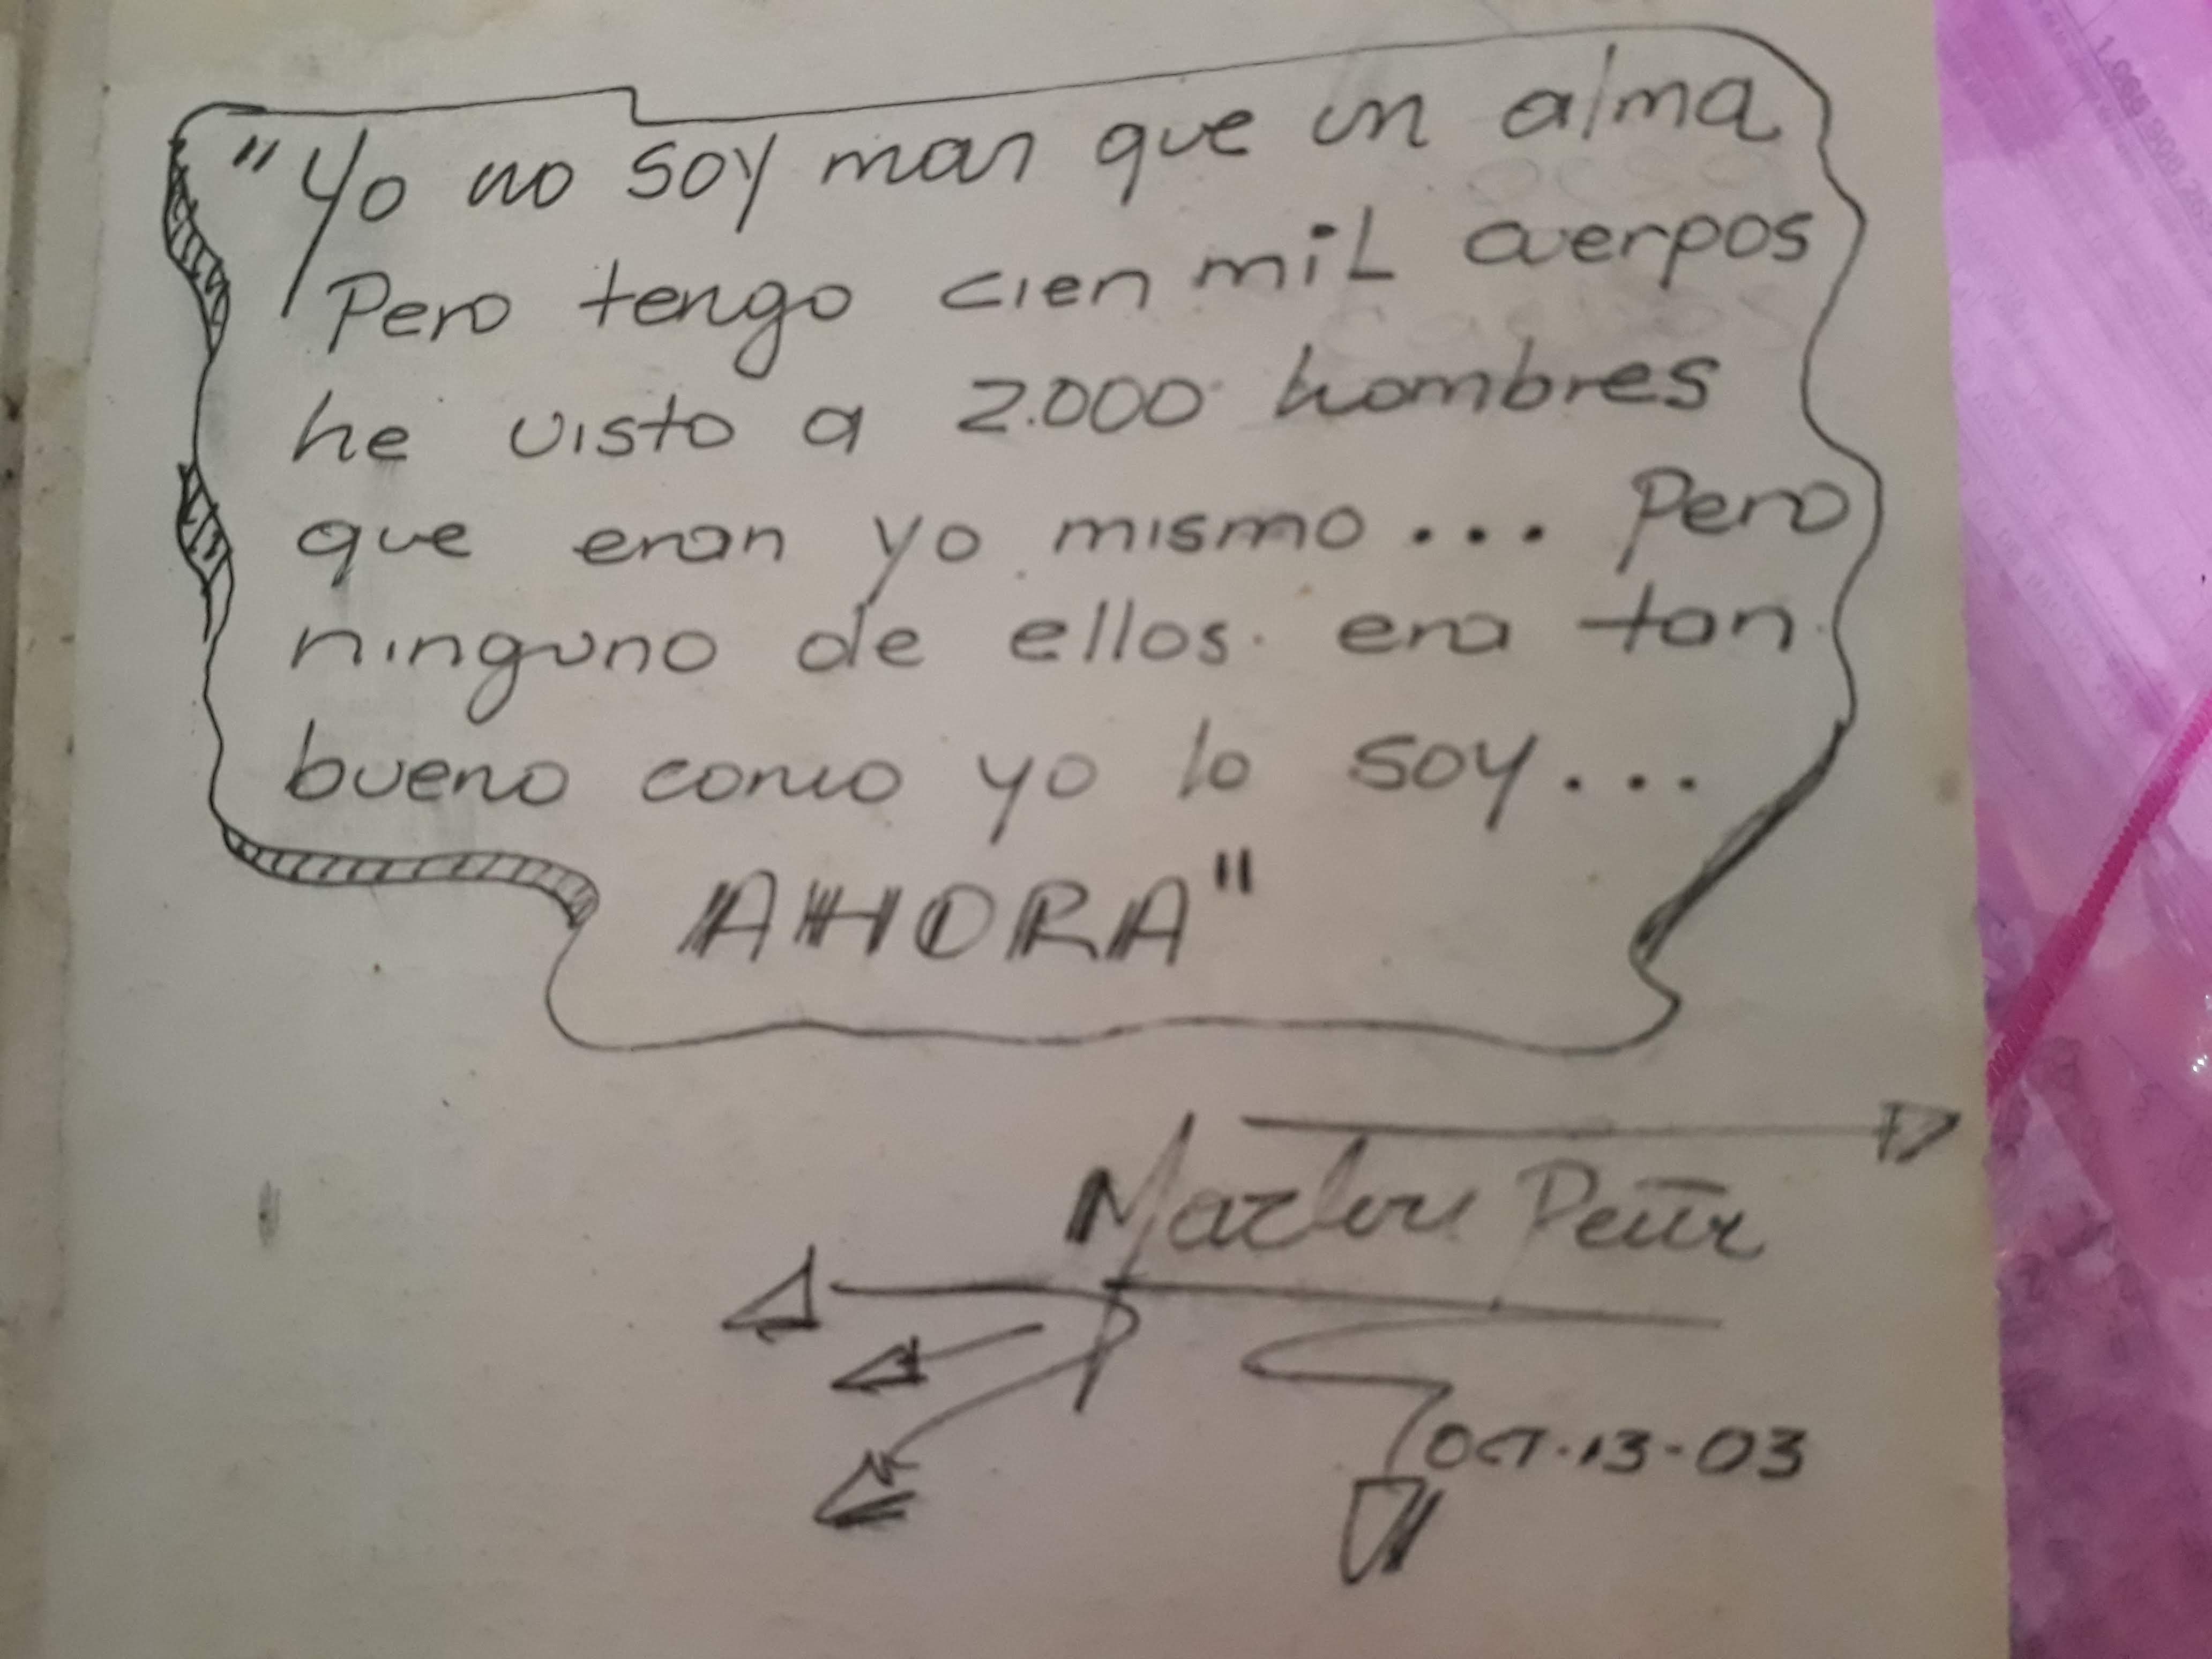 "Yo no soy mas que un alma
Pero tengo cien mil cuerpos
he visto a 2.000 hombres
que eran yo mismo... Pero
ninguno de ellos era tan
bueno como yo lo soy...
AHORA"
Marlon Peña
OCT-13-03